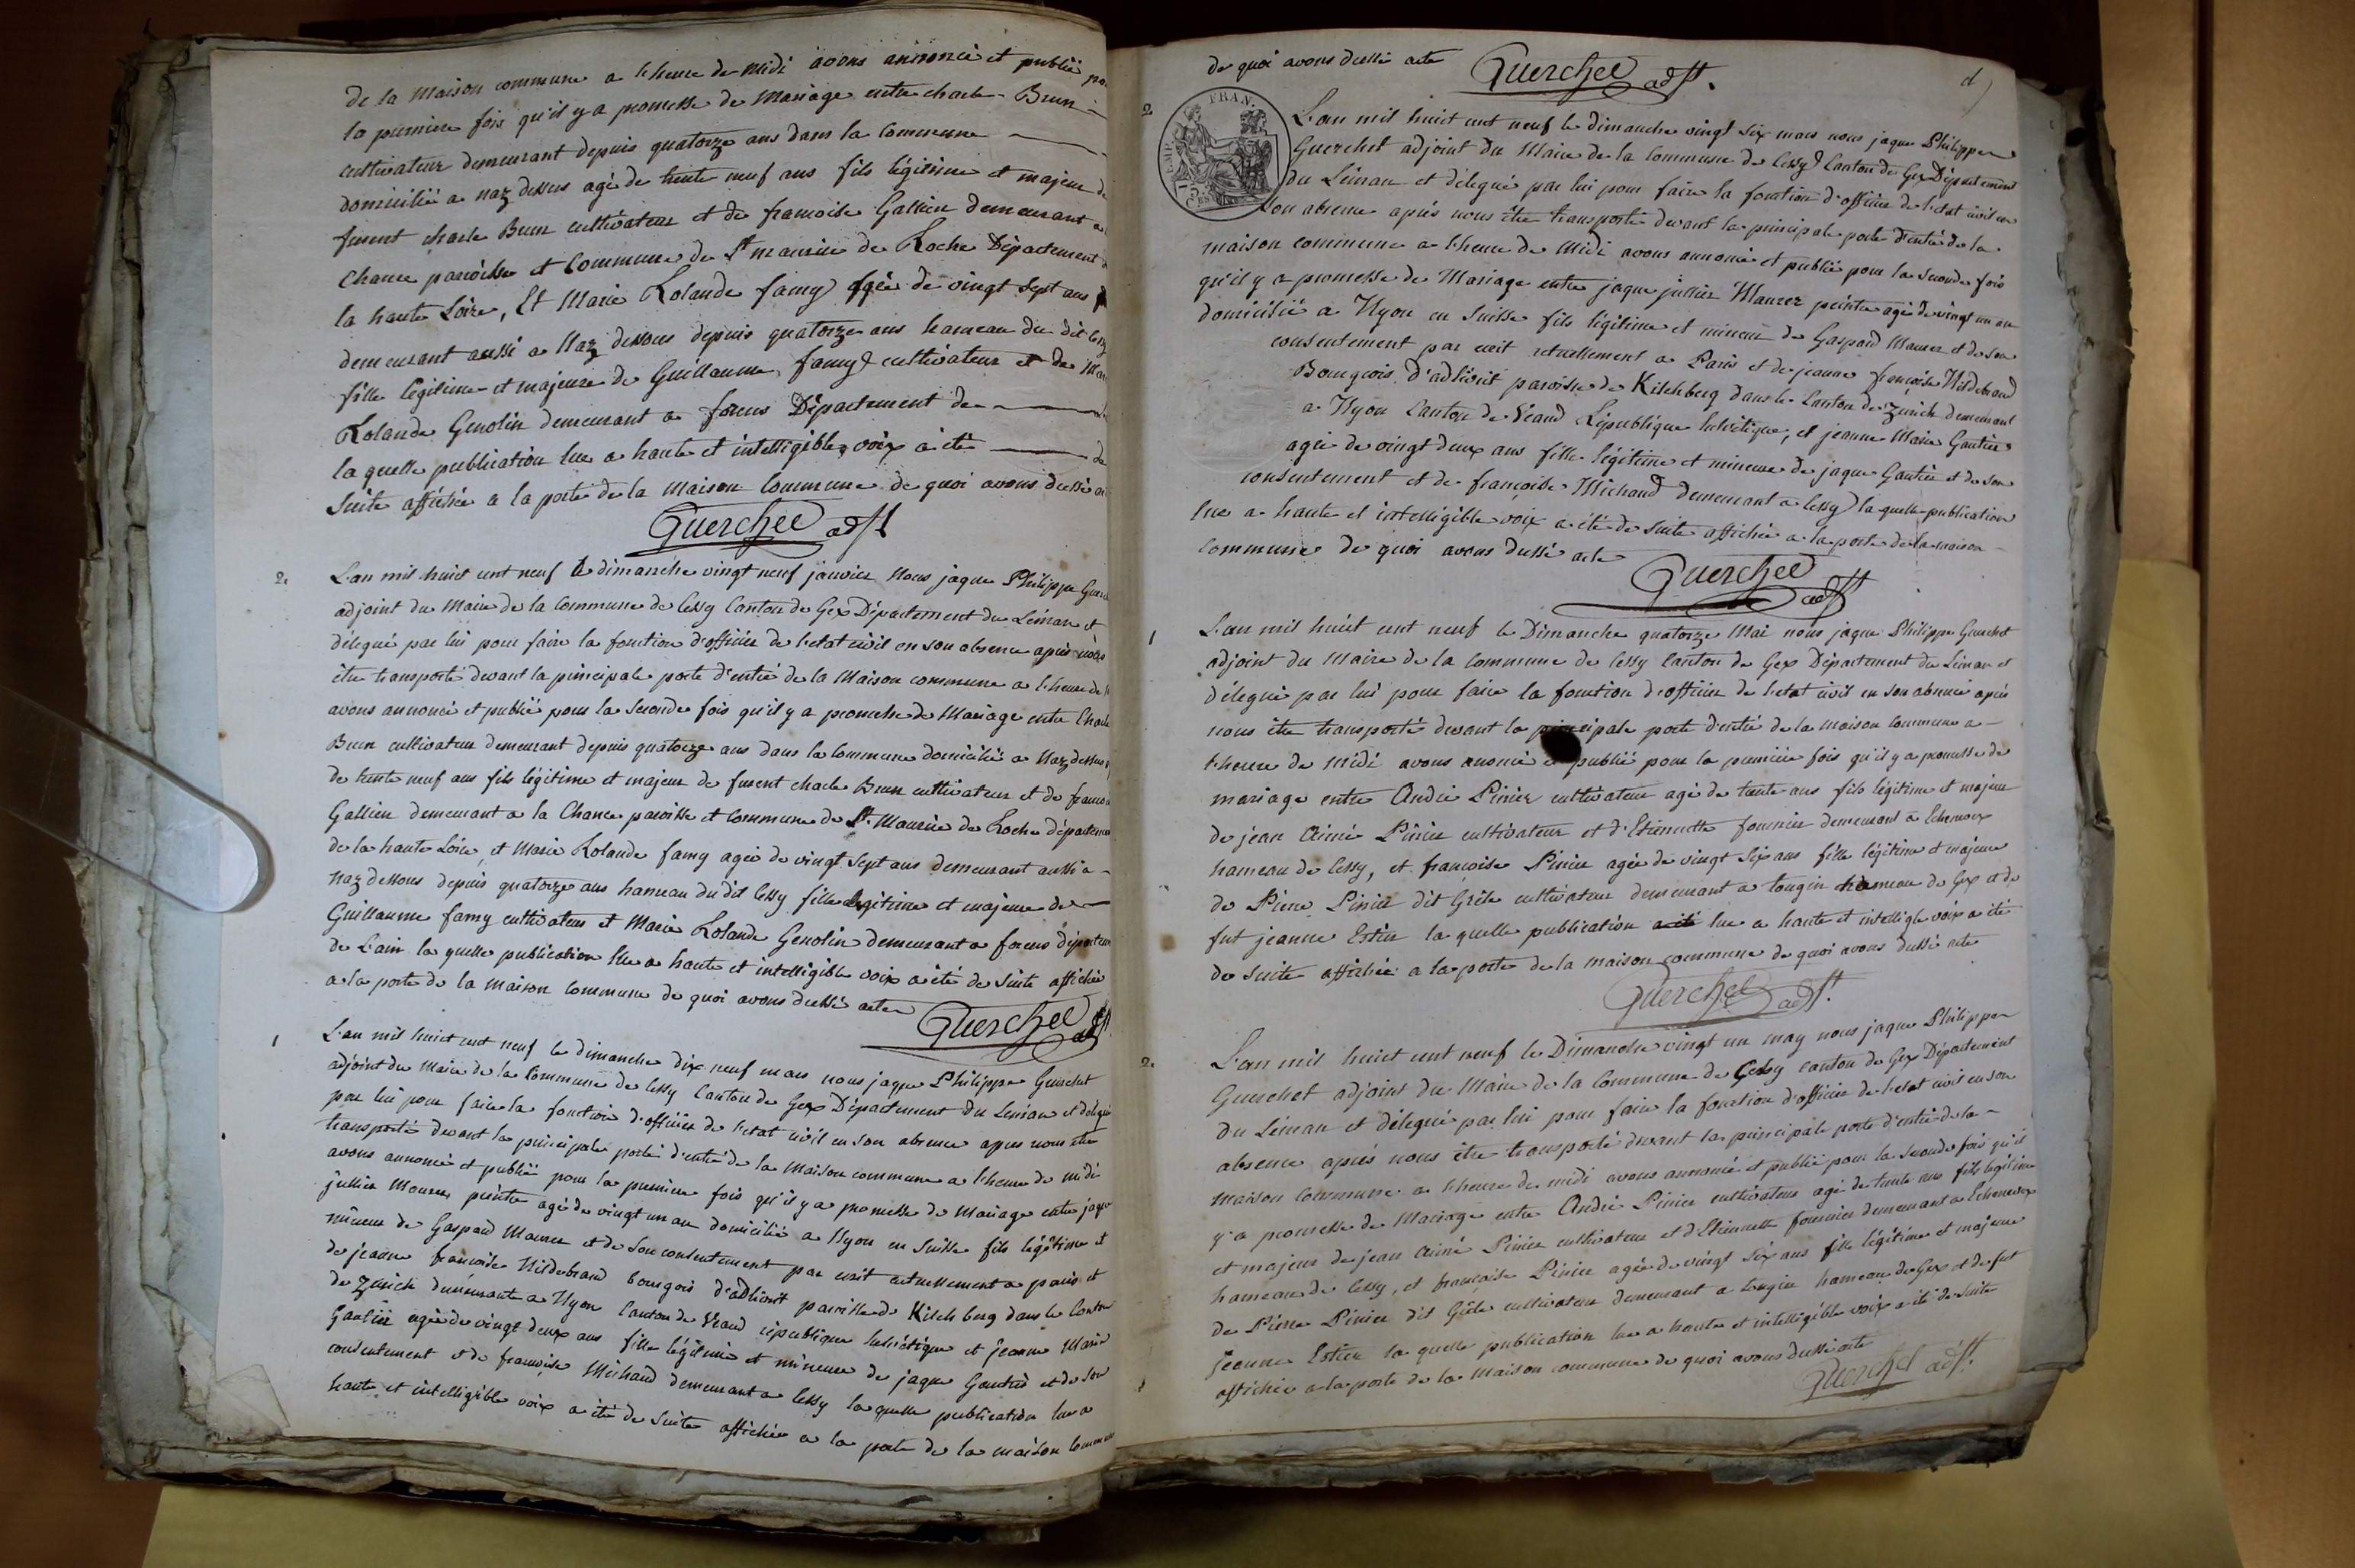 de la Maison commune a l'heure de Midi avons annoncé et publié po
la premiere fois qu'il y a promesse de Mariage entre charle Brun
cultivateur demeurant depuis quatorze ans dans la Commune
domicilié a naz dessus agé de trente neuf ans fils légitime et majeur de
furent charle Brun cultivateur et de francoise Gallien demeurant a
Chance paroisse et Commune de St maurice de Roche Département d
la haute Loire, Et Marie Rolande famy agée de vingt sept ans
demeurant aussi a Naz dessous depuis quatorze ans hameau du dit Cessy
fille légitime et majeure de Guillaume famy cultivateur et de Mar
Rolande Genolin demeurant a forens Département de
la quelle publication lue a haute et intelligible voix a été de
suite affichée a la porte de la Maison Commune de quoi avons dressé ac
Guerchet adjt
2. L'an mil huict cent neuf le dimanche vingt neuf janvier Nous jaque Philippe Guer
adjoint du Maire de la Commune de Cessy Canton de Gex Département du Léman et
délegué par lui pour faire la fonction d'officier de l'etat civil en son absence après nous
être transporté devant la principale porte d'entrée de la Maison commune a l'heure de
avons annoncé et publié pour la seconde fois qu'il y a promesse de Mariage entre Charle
Brun cultivateur demeurant depuis quatorze ans dans la Commune domicilié a Naz dessus
de trente neuf ans fils légitime et majeur de furent charle Brun cultivateur et de francoi
Gallien demeurant a la Chance paroisse et Commune de St. Maurice de Roche départemen
de la haute Loire, et Marie Rolande famy agée de vingt sept ans demeurant aussi a
naz dessous depuis quatorze ans hameau du dit Cessy fille legitime et majeure de
Guillaume famy cultivateur et Marie Rolande Genolin demeurant a forens départem
de L'ain la quelle publication lue a haute et intelligible voix a été de suite affichée
a la porte de la maison Commune de quoi avons dressé acte
Guerchet adjt
1 L'an mil huict cent neuf le dimanche dix neuf mars nous jaque Philippe Guerchet
adjoint du Maire de la Commune de Cessy Canton de Gex Département du Leman et délegué
par lui pour faire la fonction d'officier de l'etat civil en son absence apres nous être
transporté devant la principale porte d'entrée de la Maison commune a l'heure de midi
avons annoncé et publié pour la premiere fois qu'il y a promesse de Mariage entre jaque
jullien Maurer peintre agé de vingt un an domicilié a Nyon en Suisse fils légitime et
mineur de Gaspard Maurer et de son consentement par ecrit actuellement a paris et
de jeanne francoise Hildebrand bourgois d'adlionit paroisse de Kilchberg dans le Canton
de Zurich demeurante a Nyon Canton de Veaud république helvétique et jeanne Marie
Gautier agée de vingt deux ans fille légitime et mineure de jaque Gautier et de son
consentement et de francoise Michaud demeurant a Cessy la quelle publication lue a
haute et intelligible voix a été de suite affichée a la porte de la maison commune
de quoi avons dressé acte
Guerchet adjt.
2 L'an mil huict cent neuf le dimanche vingt six mars nous jaque Philippe
Guerchet adjoint du Maire de la Commune de Cessy Canton de Gex Département
du Léman et délegué par lui pour faire la fonction d'officier de l'etat civil en
son absence après nous être transporté devant la principale porte d'entrée de la
maison commune a l'heure de Midi avons annoncé et publié pour la seconde fois
qu'il y a promesse de Mariage entre jaque jullien Maurer peintre agé de vingt un an
domicilié a Nyon en Suisse fils légitime et mineur de Gaspard Maurer et de son
consentement par ecrit actuellement a Paris et de jeanne francoise Hildebrand
Bourgeois d'adlionit paroisse de Kilchberg dans le Canton de Zurich demeurant
a Nyon Canton de Véaud République helvétique, et jeanne Marie Gautier
agée de vingt deux ans fille légitime et mineure de jaque Gautier et de son
consentement et de françoise Michaud demeurant a Cessy la quelle publication
lue a haute et intelligible voix a été de suite affichée a la porte de la maison
commune de quoi avons dressé acte
Guerchet adjt
FRAN.
EMP.
75
CES
1 L'an mil huict cent neuf le Dimanche quatorze Mai nous jaque Philippe Guerchet
adjoint du Maire de la Commune de Cessy Canton de Gex Département du Léman et
délegué par lui pour faire la fonction d'officier de l'etat civil en son absence après
nous être transporté devant la principale porte d'entrée de la maison Commune a
l'heure de Midi avons anoncé et publié pour la premiere fois qu'il y a promesse de
mariage entre André Pinier cultivateur agé de trente ans fils légitime et majeur
de jean Aimé Pinier cultivateur et d'Etiennette fournier demeurant a Echenevex
hameau de Cessy, et françoise Pinier agée de vingt six ans fille légitime et majeure
de Pierre Pinier dit Grite cultivateur demeurant a tougin hameau de Gex et de
fut jeanne Estier la quelle publication a été lue a haute et intelligle voix a été
de suite affichée a la porte de la maison commune de quoi avons dressé acte
Guerchet adjt.
2. L'an mil huict cent neuf le Dimanche vingt un may nous jaque Philippe
Guerchet adjoint du Maire de la Commune de Cessy canton de Gex Département
du Léman et délegué par lui pour faire la fonction d'officier de l'etat civil en son
absence après nous être transporté devant la principale porte d'entrée de la
maison Commune a l'heure de midi avons annoncé et publié pour la seconde fois qu'il
y a promesse de Mariage entre André Pinier cultivateur agé de trente ans fils légitime
et majeur de jean Aimé Pinier cultivateur et d'Etiennette fournier demeurant a Echenevex
hameau de Cessy, et françoise Pinier agée de vingt six ans fille légitime et majeure
de Pierre Pinier dit Grite cultivateur demeurant a tougin hameau de Gex et de fut
jeanne Estier la quelle publication lue a haute et intelligible voix a été de suite
affichée a la porte de la Maison commune de quoi avons dressé acte
Guerchet adjt.